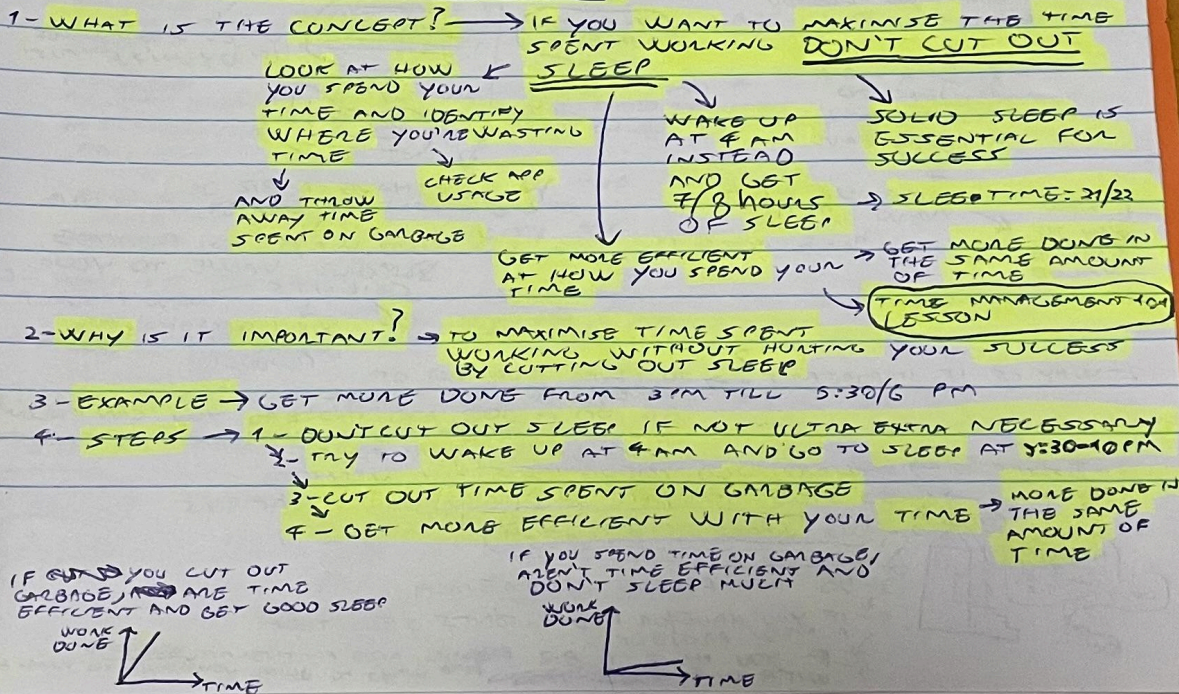 1- WHAT IS THE CONCEPT? → IF YOU WANT TO MAXIMISE THE TIME
SPENT WORKING DON'T CUT OUT
SLEEP
LOOK AT HOW
YOU SPEND YOUR
TIME AND IDENTIFY
WHERE YOU'RE WASTING
TIME
CHECK APP
USAGE
AND THROW
AWAY TIME
SPENT ON GARBAGE
WAKE UP
AT 4 AM
INSTEAD
AND GET
7/8 hours
OF SLEEP
SOLID SLEEP IS
ESSENTIAL FOR
SUCCESS
→ SLEEP TIME: 21/22
GET MORE EFFICIENT
AT HOW YOU SPEND YOUR
TIME
→ GET MORE DONE IN
THE SAME AMOUNT
OF TIME
TIME MANAGEMENT
LESSON
2- WHY IS IT IMPORTANT? → TO MAXIMISE TIME SPENT
WORKING WITHOUT HURTING YOUR SUCCESS
BY CUTTING OUT SLEEP
3- EXAMPLE → GET MORE DONE FROM 3PM TILL 5:30/6 PM
4- STEPS → 1- DON'T CUT OUT SLEEP IF NOT ULTRA EXTRA NECESSARY
2- TRY TO WAKE UP AT 4 AM AND GO TO SLEEP AT 9:30-10 PM
3- CUT OUT TIME SPENT ON GARBAGE
4- GET MORE EFFICIENT WITH YOUR TIME →
MORE DONE IN
THE SAME
AMOUNT OF
TIME
IF YOU CUT OUT
GARBAGE, ARE TIME
EFFICIENT AND GET GOOD SLEEP
WORK
DONE
→ TIME
IF YOU SPEND TIME ON GARBAGE,
AREN'T TIME EFFICIENT AND
DON'T SLEEP MUCH
WORK
DONE
→ TIME